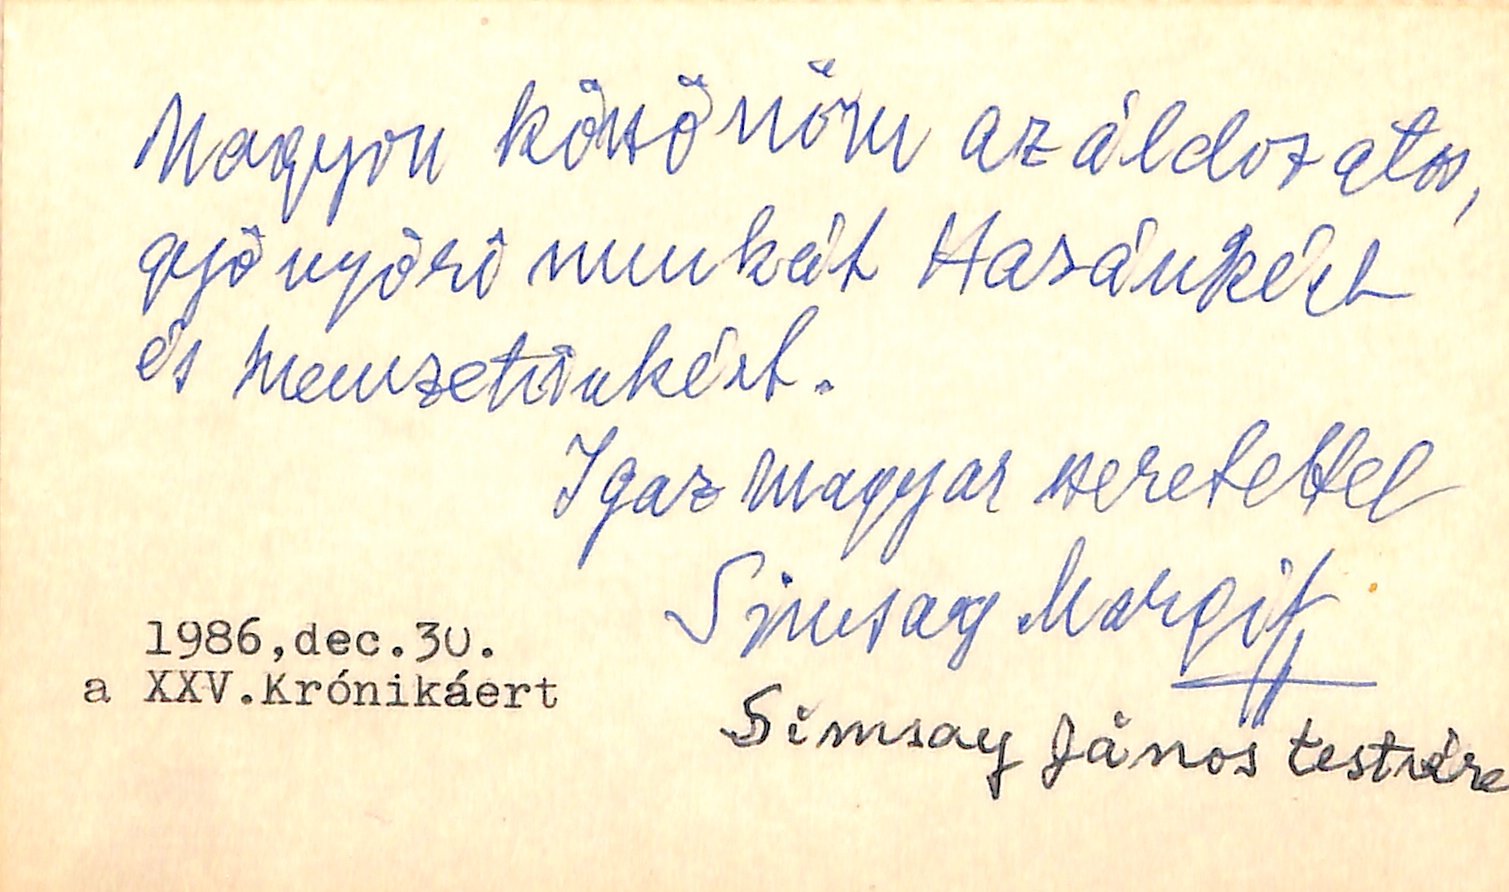 Nagyon köszönöm az áldozatos,
gyönyörű munkát Hazánkért
és nemzetünkért.
Igaz magyar szeretettel
Simsay Margit
1986,dec.30.
a XXV.Krónikáert
Simsay János testvére